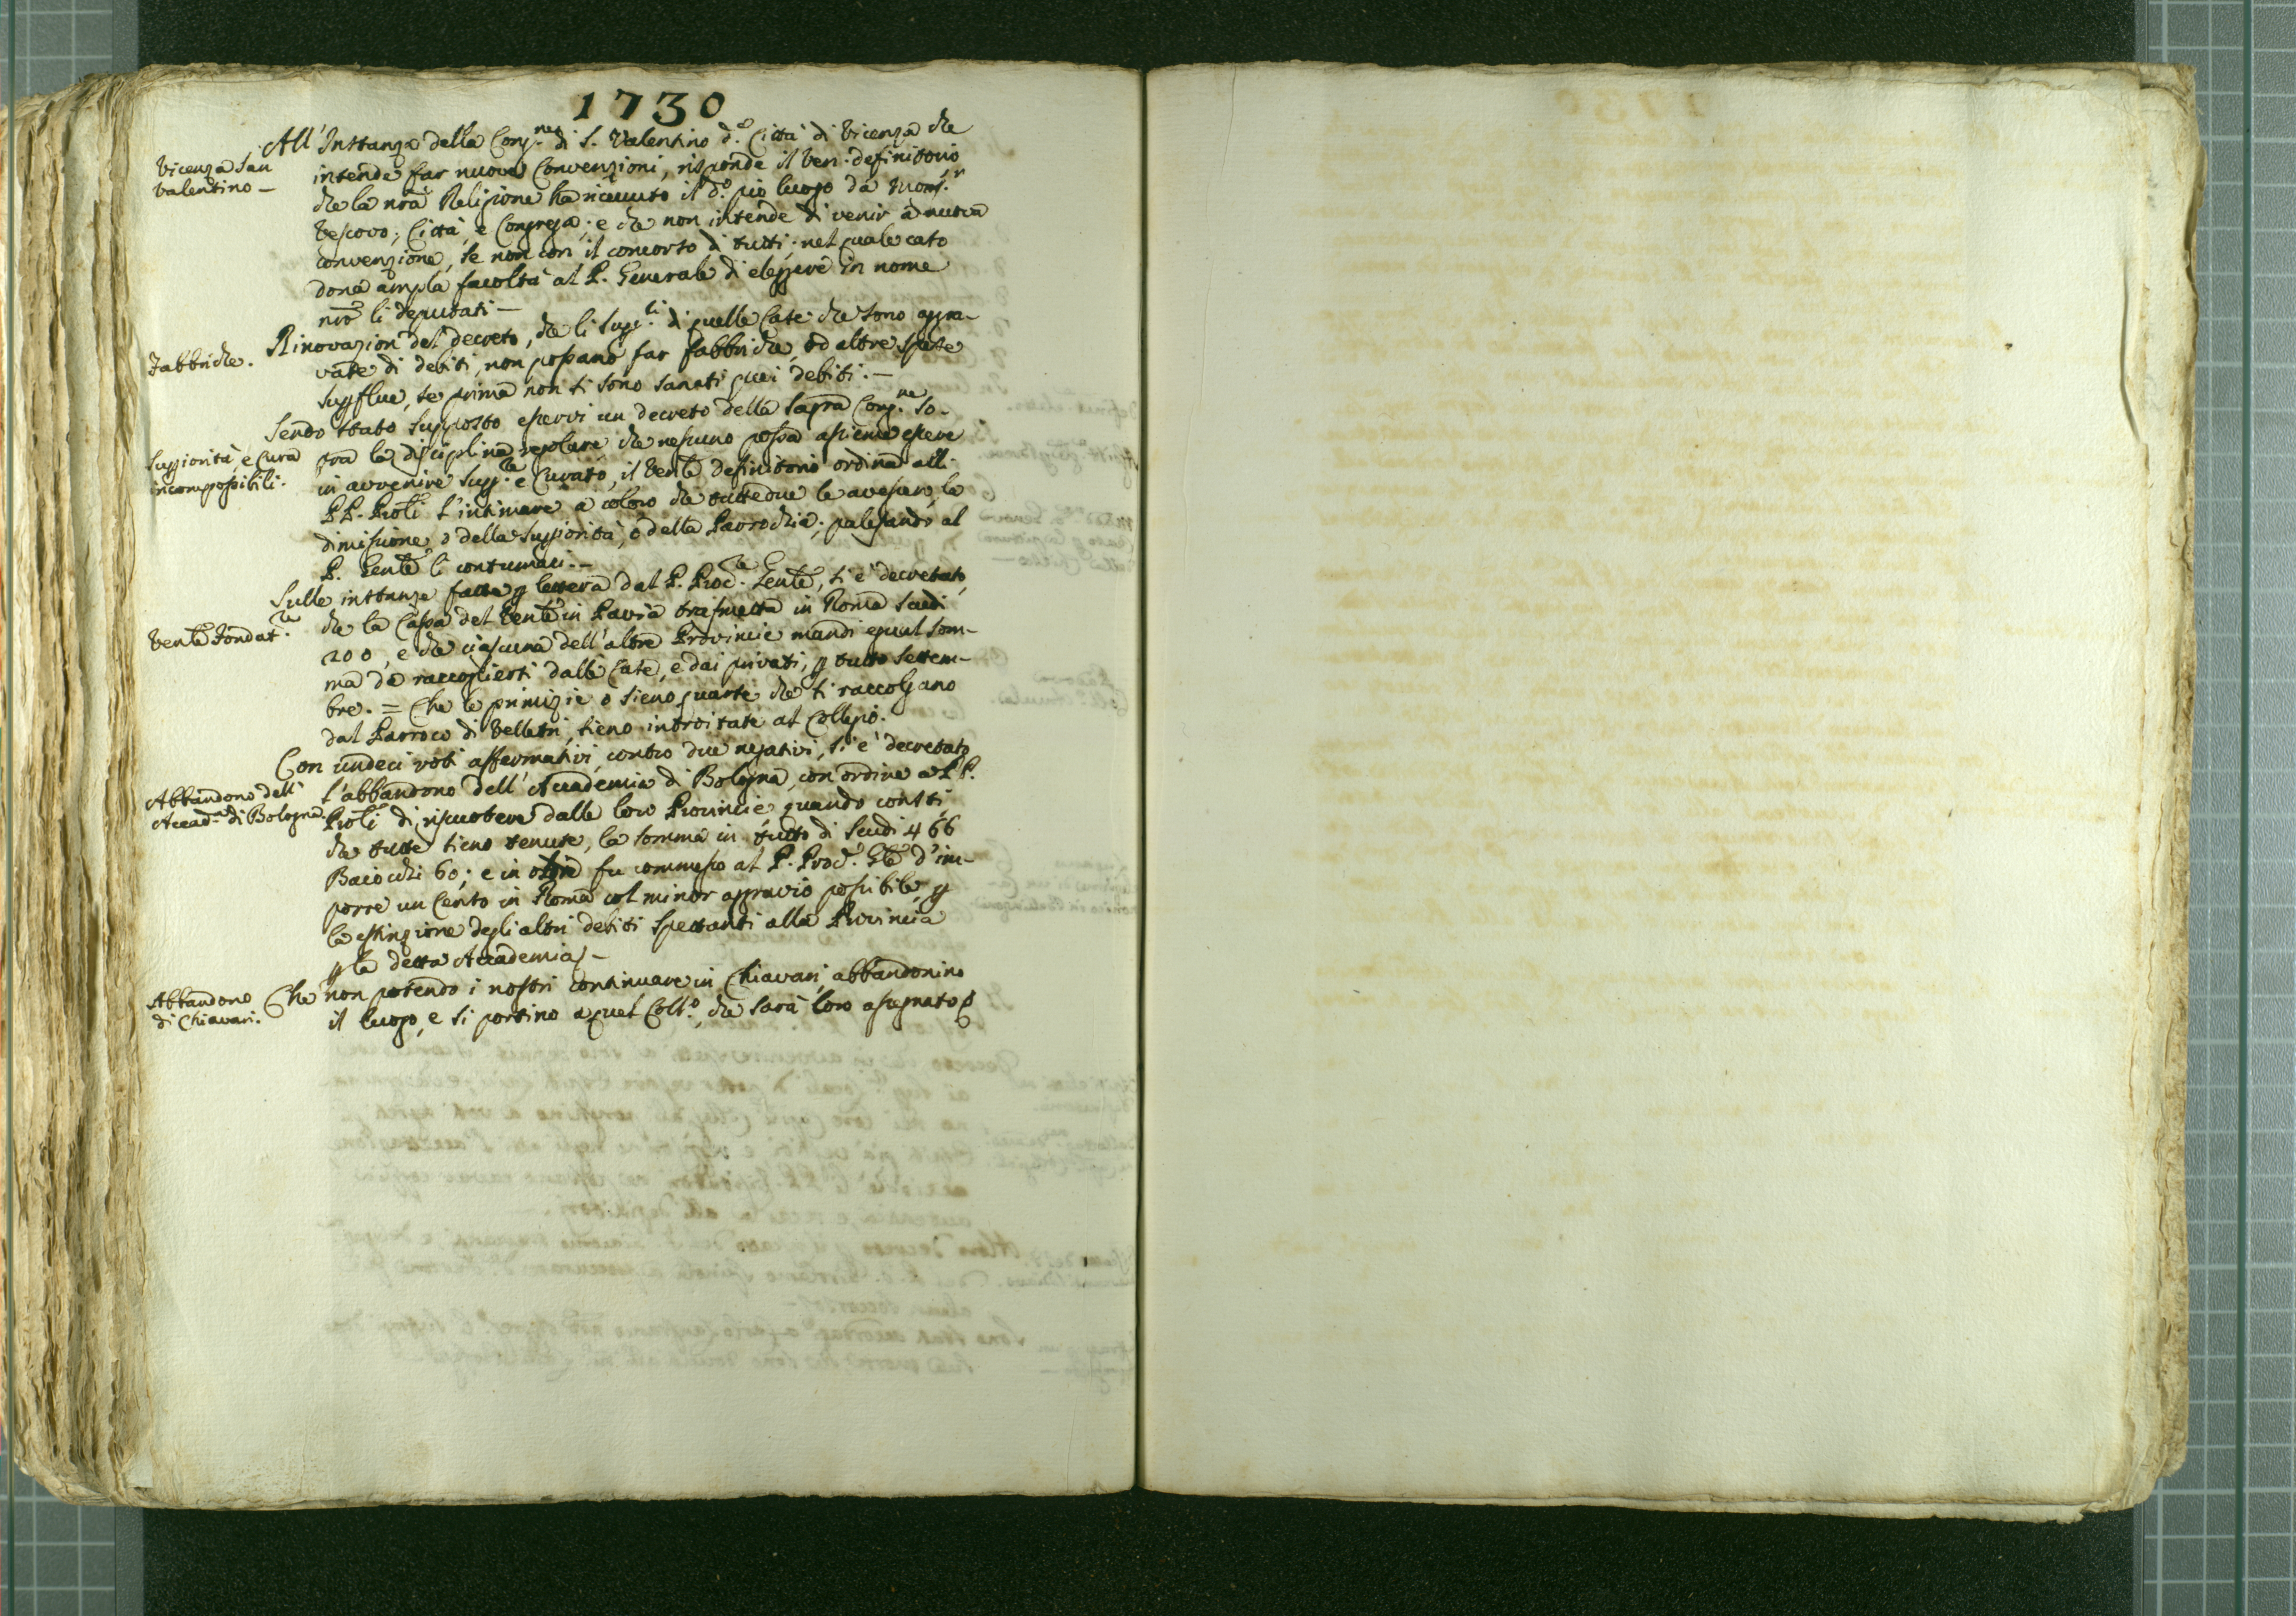 1730
Vicenza San
Valentino —
All' Instanza della Cong.ne di S. Valentino d.a Città di Vicenza che
intende far nuove Convenzioni, risponde il Ven. definitorio
che la nrã Religione ha ricevuto il d.o pio luogo da Mons.r
Vescovo, Città, e Congrega; e che non intende di venir à nuova
convenzione, se non con il concorso di tutti; nel quale caso
dona ampla facoltà al P. Generale di eleggere in nome
nrõ li deputati —
Fabbriche.
Rinovazion del decreto, che li Supr.ri di quelle Case che sono agra-
vate di debiti, non possano far fabbriche, od altre spese
supflue, se prima non si sono sanati quei debiti. —
Suppiorità, e Cura
incompossibili.
Sendo stato supposto esservi un decreto della Sagra Cong.ne so-
pra la disciplina regolare, che nessuno possa assieme essere
in avvenire Sup.re e Curato, il Venle definitorio ordina alli
PP. Proli l'intimare a coloro che tuttedue le avessero, la
dimissione, ò della Suppiorità, ò della Parrochia; palesando al
P. Genle li contumaci. —
Venle Fondat.re
Sulle instanze fatte p lettera dal P. Proc.re Genle, si è decretato,
che la Cassa del Venle in Pavia trasmetta in Roma scudi
200, e che ciascuna dell'altre Provincie mandi equal som-
ma da raccogliersi dalle Case, e dai privati, p tutto Settem-
bre. = Che le primizie o sieno quarte che si raccolgano
dal Parroco di Velletri, sieno introitate al Collegio.
Abbandono dell'
Accad.a di Bologna.
Con undeci voti affermativi, contro due negativi, si è decretato
l'abbandono dell'Accademia di Bologna, con ordine a PP.
Proli di riscuotere dalle loro Provincie, quando consti,
che tutte sieno tenute, la somma in tutto di Scudi 466
Baiocchi 60; e in oltre fu commesso al P. Proc.r Gle d'im-
porre un Censo in Roma col minor aggravio possibile, p
la estinzione degli altri debiti spettanti alla Provincia
p la detta Accademia —
Abbandono
di Chiavari.
Che non potendo i nostri continuare in Chiavari, abbandonino
il luogo, e si portino a quel Coll.o, che sarà loro assegnato